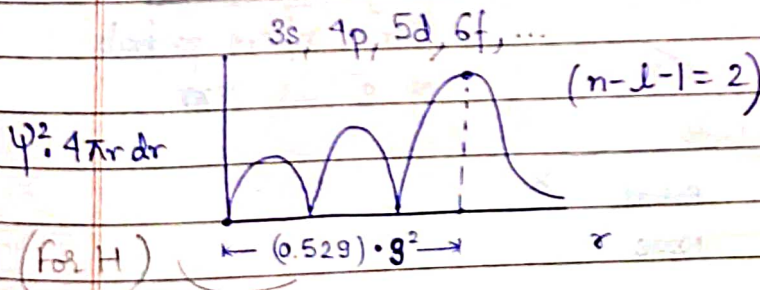 3s, 4p, 5d, 6f, ...
(n-l-1 = 2)
ψ². 4πr dr
(For H)
(0.529)•9²
r